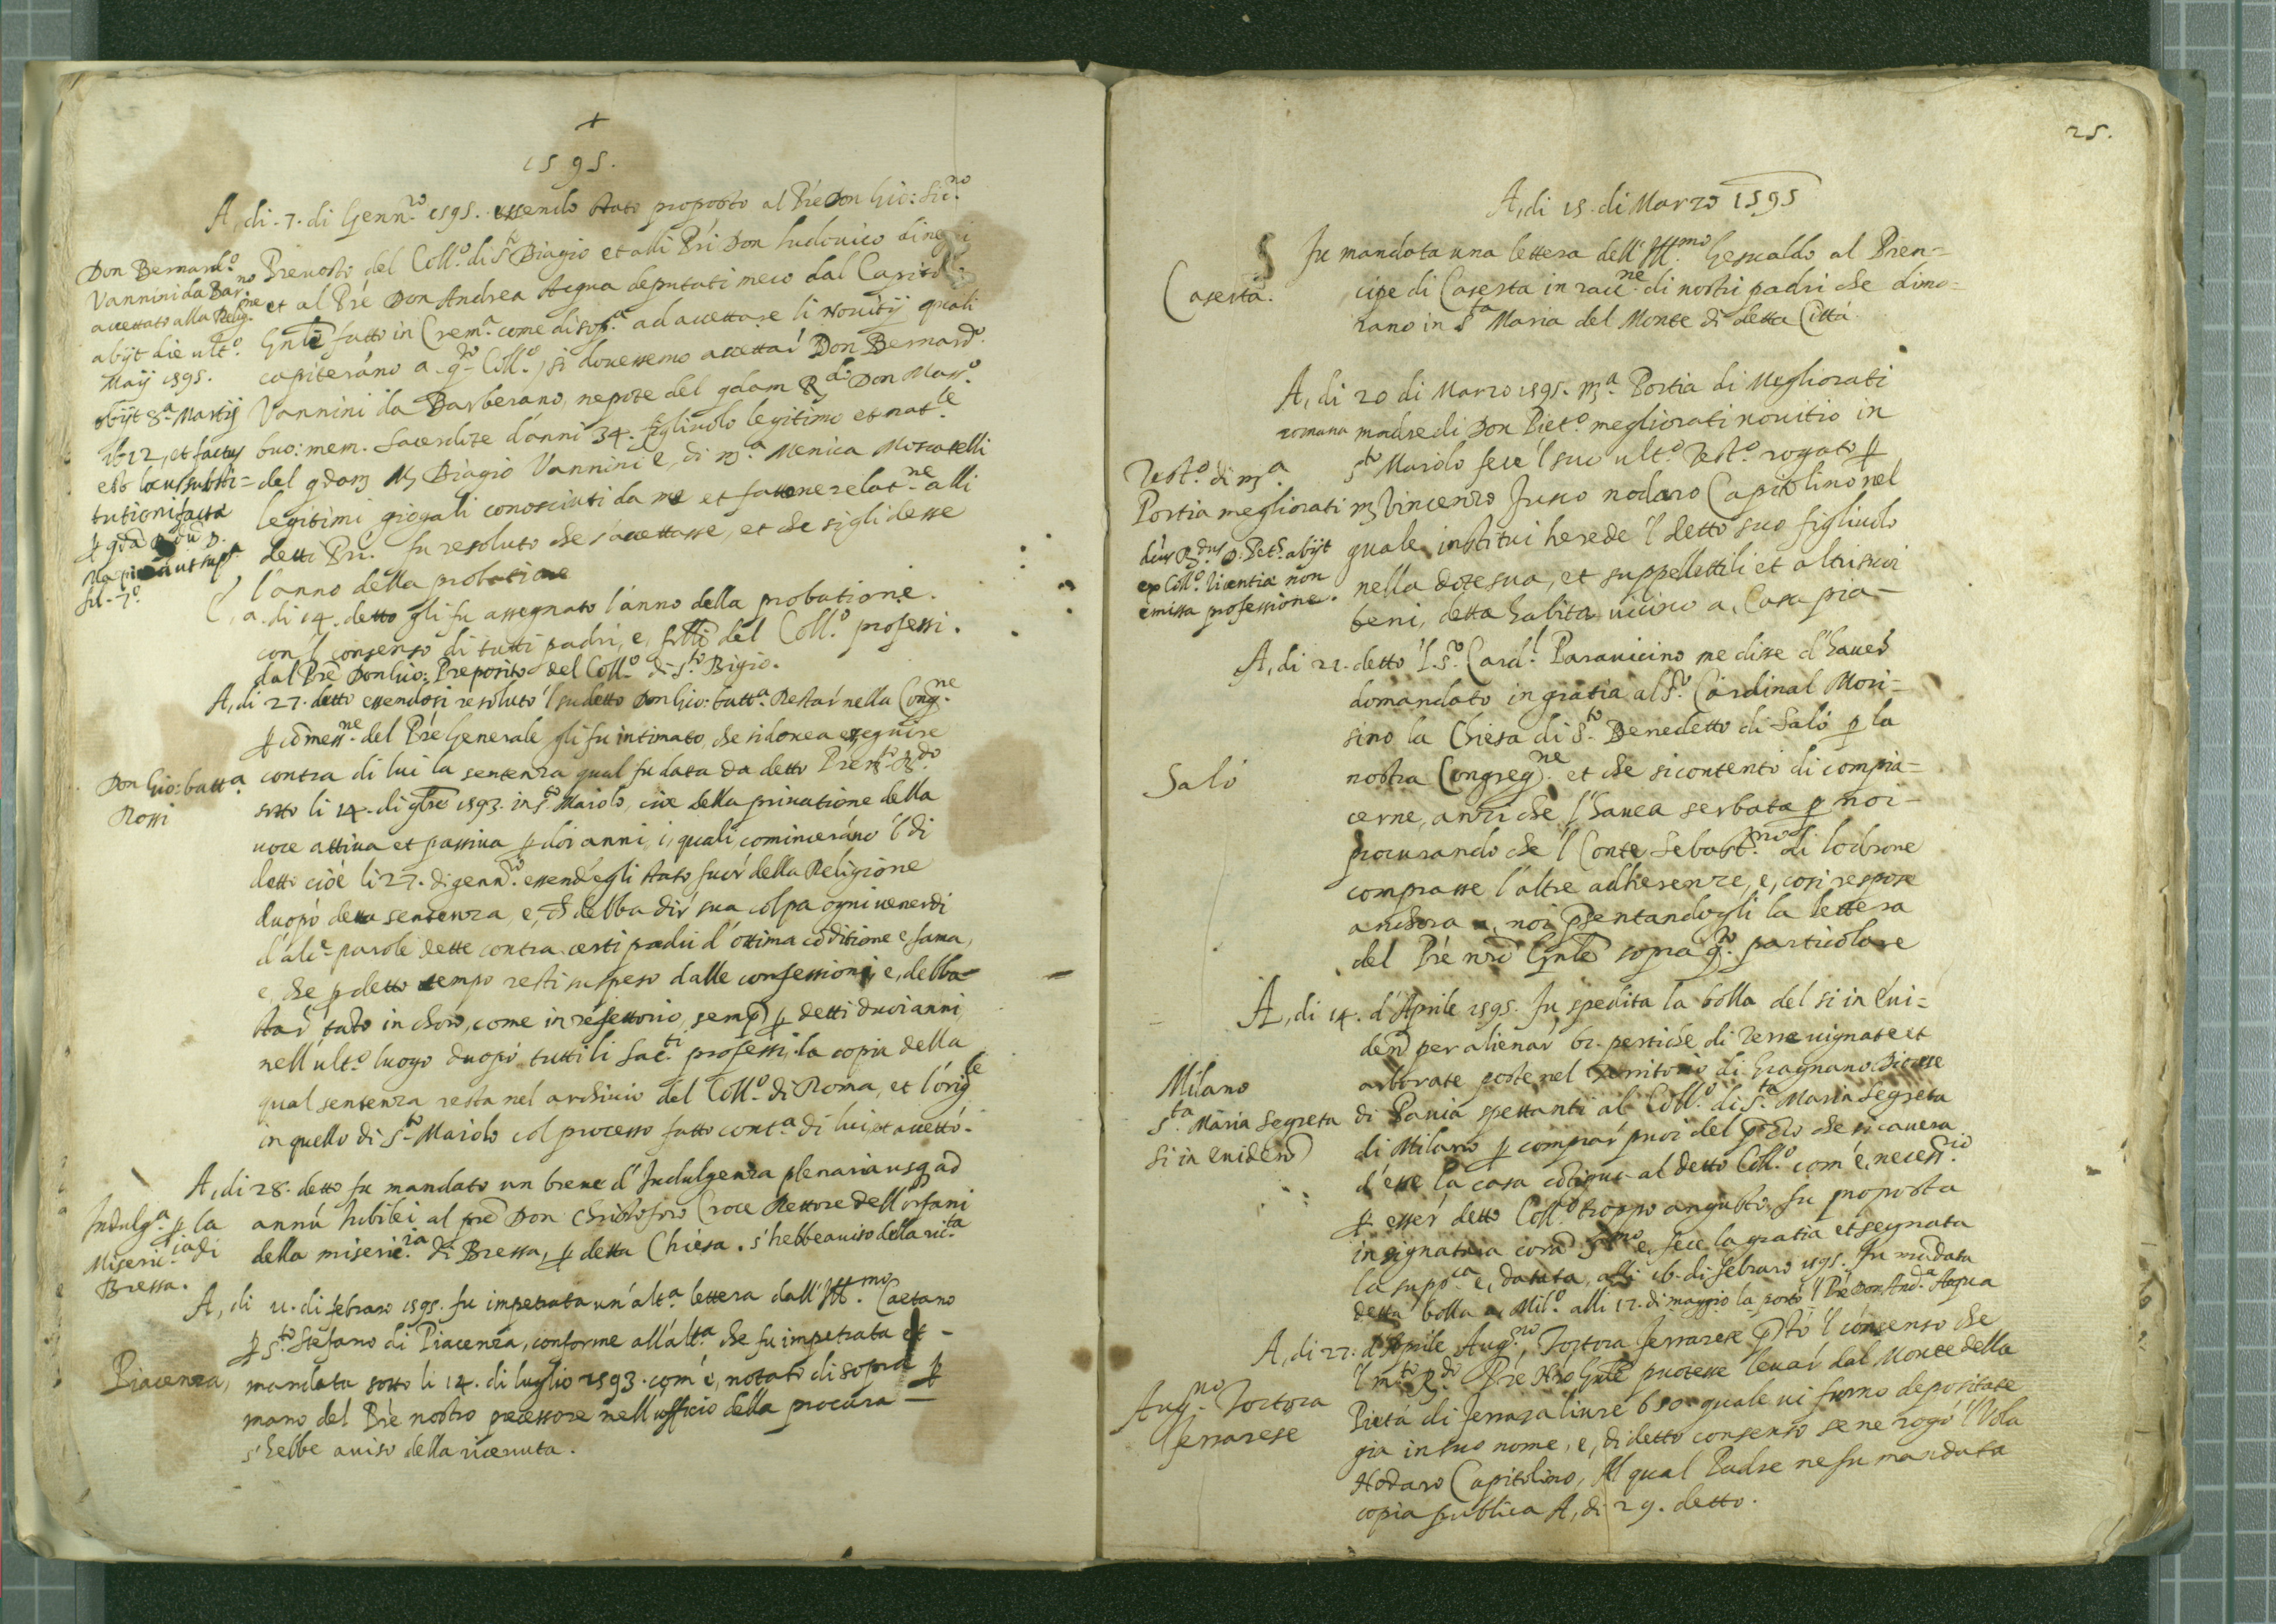 +
1595.
A, di. 7. di Genn.ro 1595. essendo stato proposto al Pre Don Gio:
Don Bernard.o
Vannini da Bar.no
accettato alla Relig.ne
abijt die ult.o
Maij 1595.
obijt 8.a Martij
est locus substi=
tutioni facta
Prevosto del Coll.o di S.to Biagio et alli Pri Don Ludovico
et al Pre Don Andrea Acqua deputati meco dal Capitolo
Gnle fatto in Crem.a come di sop.a ad accettare li Novitij quali
capiteráno a q.to Coll.o, si dovessemo accettar Don Bernard.o
Vannini da Barberano, nepote del qdam R.do Don Mass.o
buo: mem. Sacerdote d'anni 34. figliuolo legitimo et nat.le
del qdam M Biagio Vannini e, di m.a Menica Moscatelli
legitimi giogali conosciuti da me et fattone relat.ne alli
detti Pri. fu resoluto che s'accettasse, et che si gli desse
l'anno della probatione
a. di 14. detto gli fu assegnato l'anno della probatione.
con l consenso di tutti padri, e, frlli del Coll.o professi.
dal Pre Don Gio: Preposito del Coll.o di S.to Bigio.
A, di 27. detto essendosi resoluto 'l sudetto Don Gio: batt.a Restar nella Cong.ne
Don Gio: batt.a
Rossi
p comess.ne del Pre Generale gli fu intimato, che si dovea esseguire
contra di lui la sentenza qual fu data da detto
sotto li 14. di 9bre 1593. in S.to Maiolo, cioe della privatione della
voce attiva et passiva p doi anni, i, quali cominceráno 'l di
detto cioè li 27. di genn.ro essend'egli stato fuor della Religione
duopò detta sentenza, e, ch debba dir sua colpa ogni venerdi
d'alc.e parole dette contra certi padri d'ottima coditione e fama,
e, che p detto tempo resti suspeso dalle confessioni, e, debba
star tato in choro, come in refettorio, semp p detti duoi anni,
nell'ult.o luogo duopò tutti li Sac.ti professi, la copia della
qual sentenza resta nel archivio del Coll.o di Roma, et l'orig.le
in quello di S.to Maiolo col processo fatto cont.a di lui, et accettò.
A, di 28. detto fu mandato un breve d'Indulgenza plenaria usq ad
Indulg.a p la
Miseric.ia di
Bressa.
annu Iubilei al pre Don Christoforo Croce Rettore dell'orfani
della miseric.ia di Bressa, p detta Chiesa. s'hebbe aviso della ric.ta
A, di 11. di febraro 1595. fu impetrata un'alt.a lettera dall'Ill.mo Caetano
Piacenza,
p S.to Stefano di Piacenza, conforme all'alt.a che fu impetrata et
mandata sotto li 14. di luglio 1593. com'è, notato di sopra p
mano del Pre nostro pcessore nell'ufficio della procura
s'hebbe aviso della ricevuta.
25.
A, di 15. di Marzo 1595
Caserta.
Fu mandata una lettera dell'Ill.mo Gesualdo al Pren=
cipe di Caserta in racc.ne di nostri padri che dimo=
rano in S.ta Maria del Monte di detta Città.
A, di 20 di Marzo 1595. m.a Portia di Megliorati
romana madre di Don Piet.o megliorati novitio in
Test.o di m.a
Portia megliorati
S.to Maiolo fece 'l suo ult.o Test.o rogato p
m Vincenzo Fusco nodaro Capitolino nel
ex Coll.o licentia non
emissa professione.
quale institui herede 'l detto suo figliuolo
nella dote sua, et suppellettili et altri suoi
beni, detta habita vicino a, Casa pia
A, di 21. detto 'l S.r Card.l Paravicino me disse d'haver
domandato in gratia al S.r Cardinal Mori=
sino la Chiesa di S.to Benedetto di Salò p la
Salò
nostra Congreg.ne et che si contentò di compia=
cerne, anzi che l'havea serbata p noi
procurando che 'l Conte Sebast.no di Lodrone
comprasse l'altre adherenze, e, cosi respose
anchora a, noi psentandogli la lettera
del Pre nro Gnle sopra q.to particolare
A, di 14. d'Aprile 1595. fu spedita la bolla del si in evi=
den per alienar 61. pertiche di Terre vignate et
Milano
S.ta Maria Segreta
si in eviden
arborate poste nel territorio di Gragnano Diocese
di Pavia spettanti al Coll.o di S.ta Maria Segreta
di Milano p comprar puoi del pzzo che si cavera
d'esse la casa cotigua al detto Coll.o com'è, necess.io
p esser detto Coll.o troppo angusto, fu proposta
in signatura cora S.mo e, fece la gratia et segnata
la supp.ca e, datata, alli 16. di febraro 1595. fu madata
detta bolla a Mil.o alli 17. di maggio la portò 'l Pre Don And.a Acqua
A, di 27. d'Aprile Aug.no Tortora ferrarese 'l consenso che
Aug.no Tortora
ferrarese
'l m.to R.do Pre Nro Gnle potesse levar dal Monte della
Pietà di ferrara livre 650 quale vi furno depositate
già in suo nome, e, di detto consenso se ne rogò 'l Vola
Nodaro Capitolino, Al qual Padre ne fu mandata
copia publica A, di 29. detto.